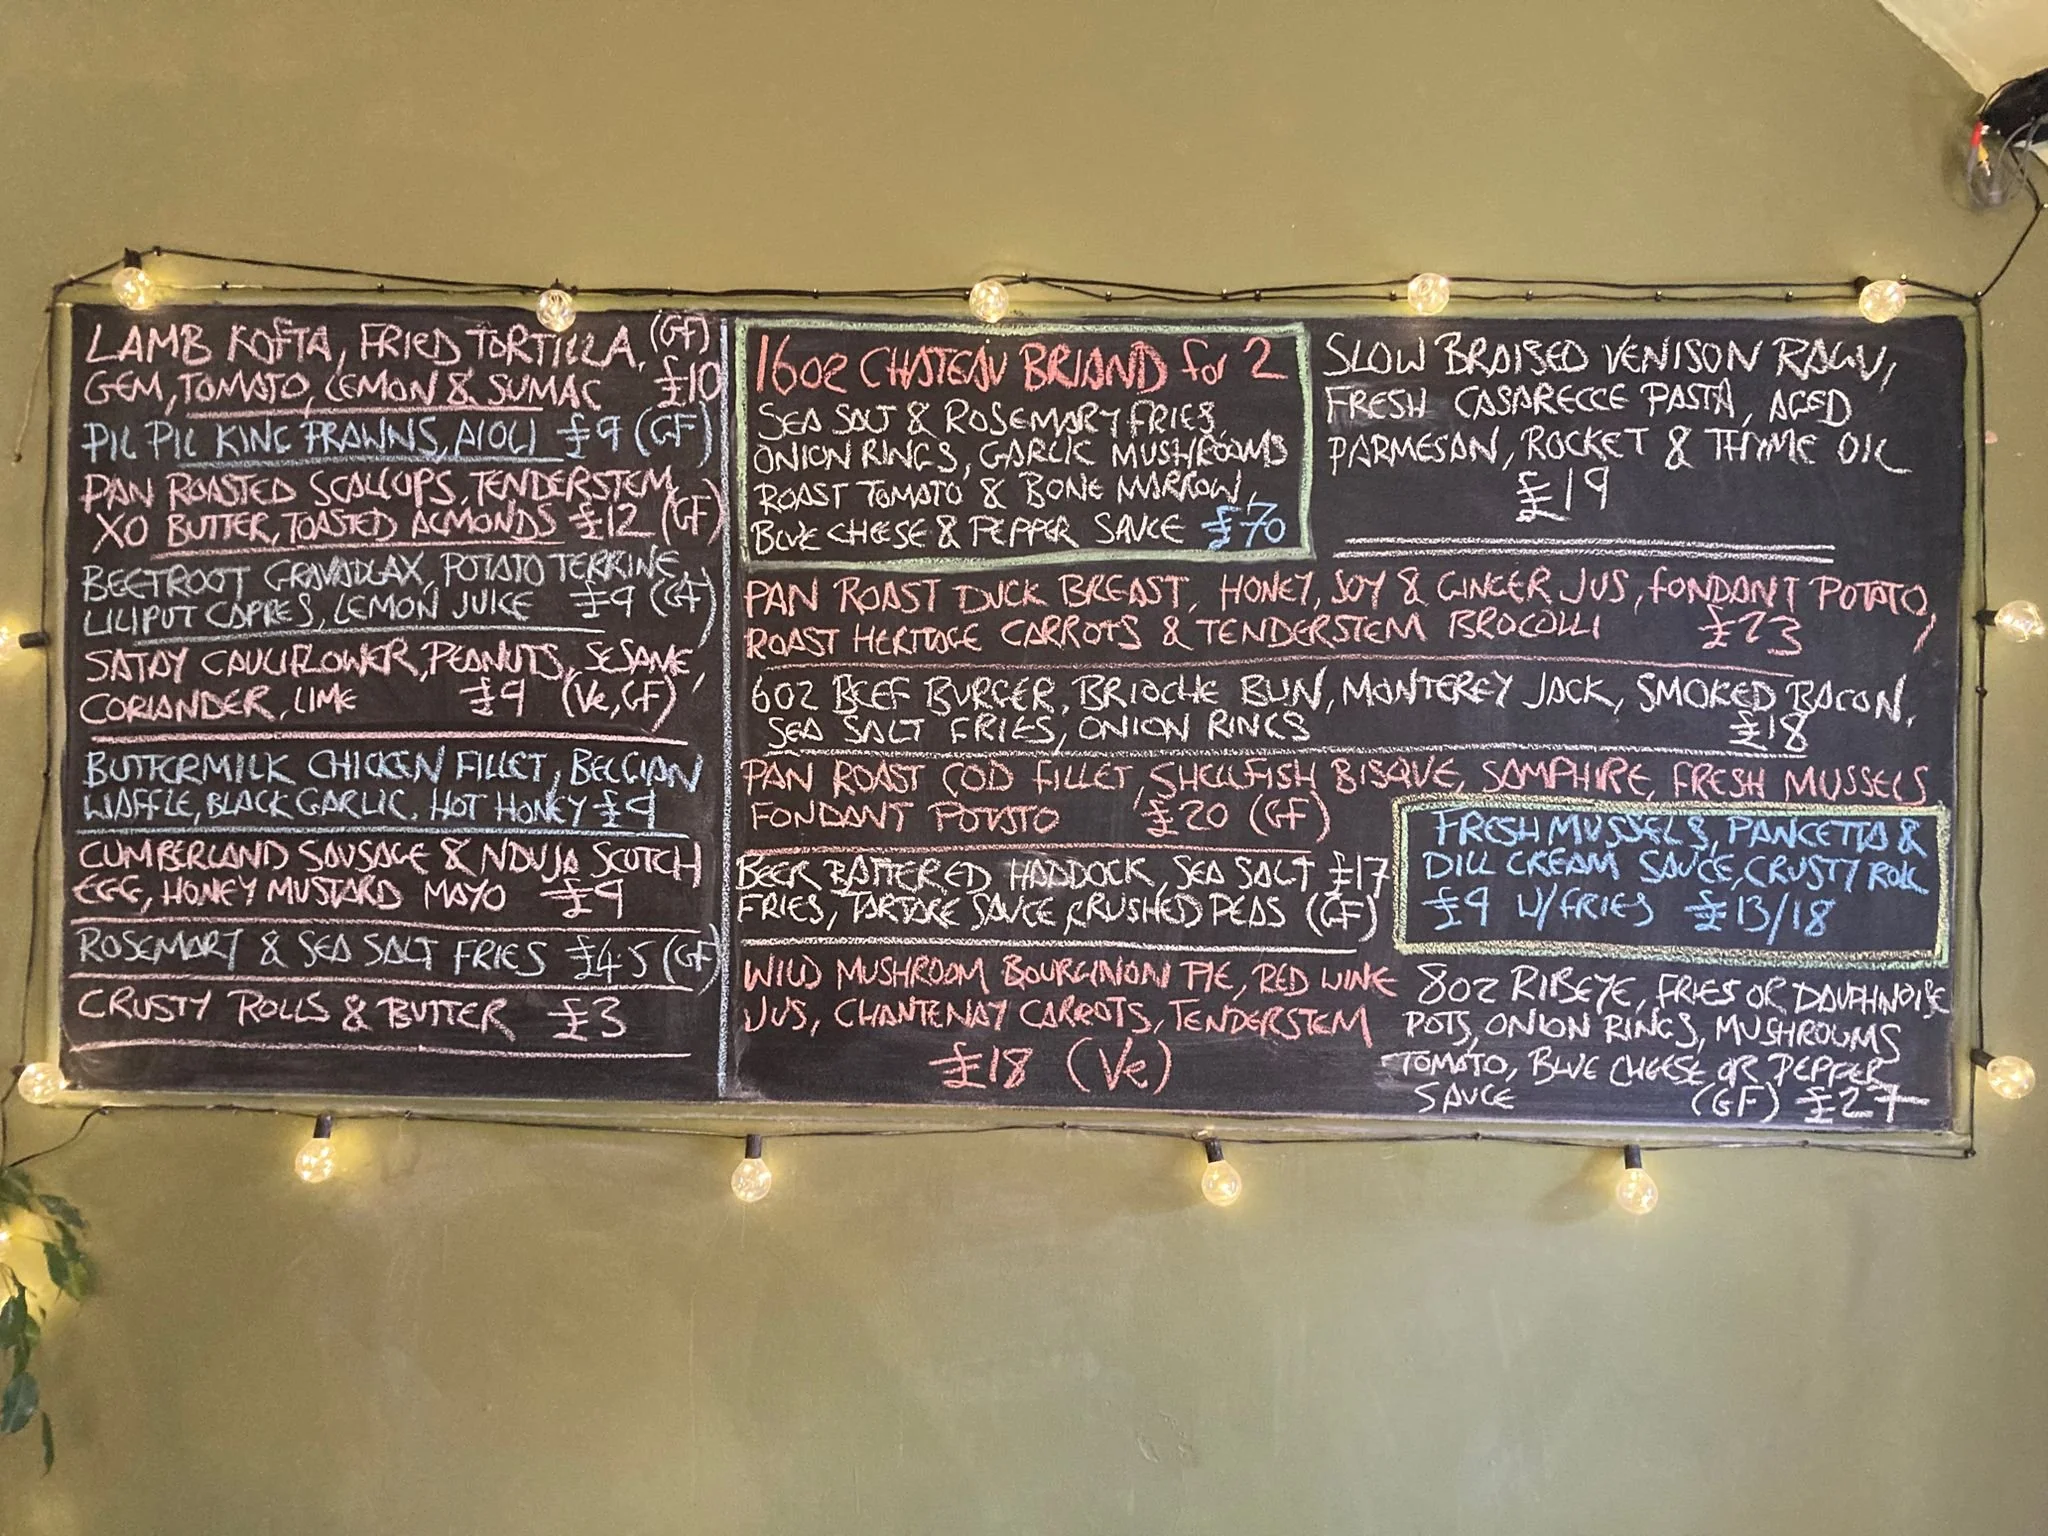 LAMB KOFTA, FRIED TORTILLA, (GF)
GEM, TOMATO, LEMON & SUMAC £10
PIL PIL KING PRAWNS, AIOLI £9 (GF)
PAN ROASTED SCALLOPS, TENDERSTEM,
XO BUTTER, TOASTED ALMONDS £12 (GF)
BEETROOT GRAVADLAX, POTATO TERRINE,
LILIPUT CAPRES, LEMON JUICE £9 (GF)
SATAY CAULIFLOWER, PEANUTS, SESAME,
CORIANDER, LIME £9 (Ve, GF)
BUTTERMILK CHICKEN FILLET, BELGIAN
WAFFLE, BLACK GARLIC, HOT HONEY £9
CUMBERLAND SAUSAGE & NDUJA SCOTCH
EGG, HONEY MUSTARD MAYO £9
ROSEMARY & SEA SALT FRIES £4.5 (GF)
CRUSTY ROLLS & BUTTER £3
16OZ CHATEAU BRIAND for 2
SEA SALT & ROSEMARY FRIES,
ONION RINGS, GARLIC MUSHROOMS
ROAST TOMATO & BONE MARROW,
BLUE CHEESE & PEPPER SAUCE £70
SLOW BRAISED VENISON RAGU,
FRESH CASARECCE PASTA, AGED
PARMESAN, ROCKET & THYME OIL
£19
PAN ROAST DUCK BREAST, HONEY, SOY & GINGER JUS, FONDANT POTATO,
ROAST HERITAGE CARROTS & TENDERSTEM BROCOLLI £23
6OZ BEEF BURGER, BRIOCHE BUN, MONTEREY JACK, SMOKED BACON,
SEA SALT FRIES, ONION RINGS £18
PAN ROAST COD FILLET, SHELLFISH BISQUE, SAMPHIRE, FRESH MUSSELS
FONDANT POTATO £20 (GF)
BEER BATTERED HADDOCK, SEA SALT £17
FRIES, TARTARE SAUCE, CRUSHED PEAS (GF)
FRESH MUSSELS, PANCETTA &
DILL CREAM SAUCE, CRUSTY ROLL
£9 W/FRIES £13/18
WILD MUSHROOM BOURGINION PIE, RED WINE
JUS, CHANTENAY CARROTS, TENDERSTEM
£18 (Ve)
8OZ RIBEYE, FRIES OR DAUPHNOISE
POTS, ONION RINGS, MUSHROOMS
TOMATO, BLUE CHEESE OR PEPPER
SAUCE (GF) £27